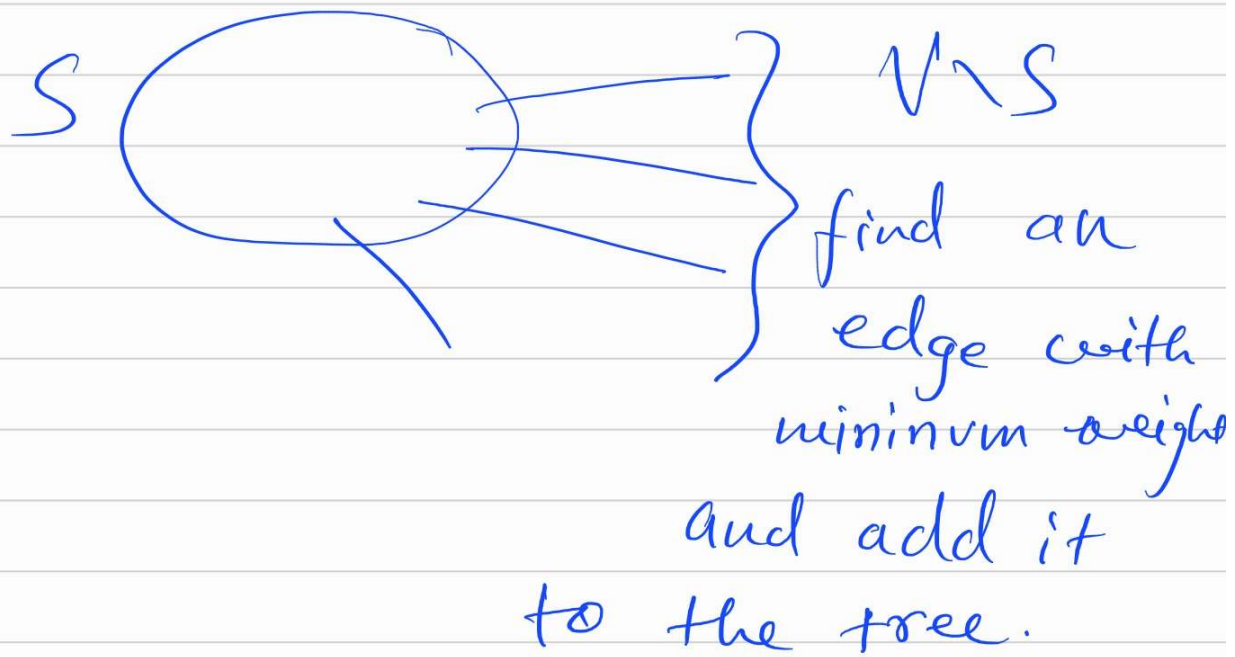 S V\S
find an
edge with
mininum weight
and add it
to the tree.